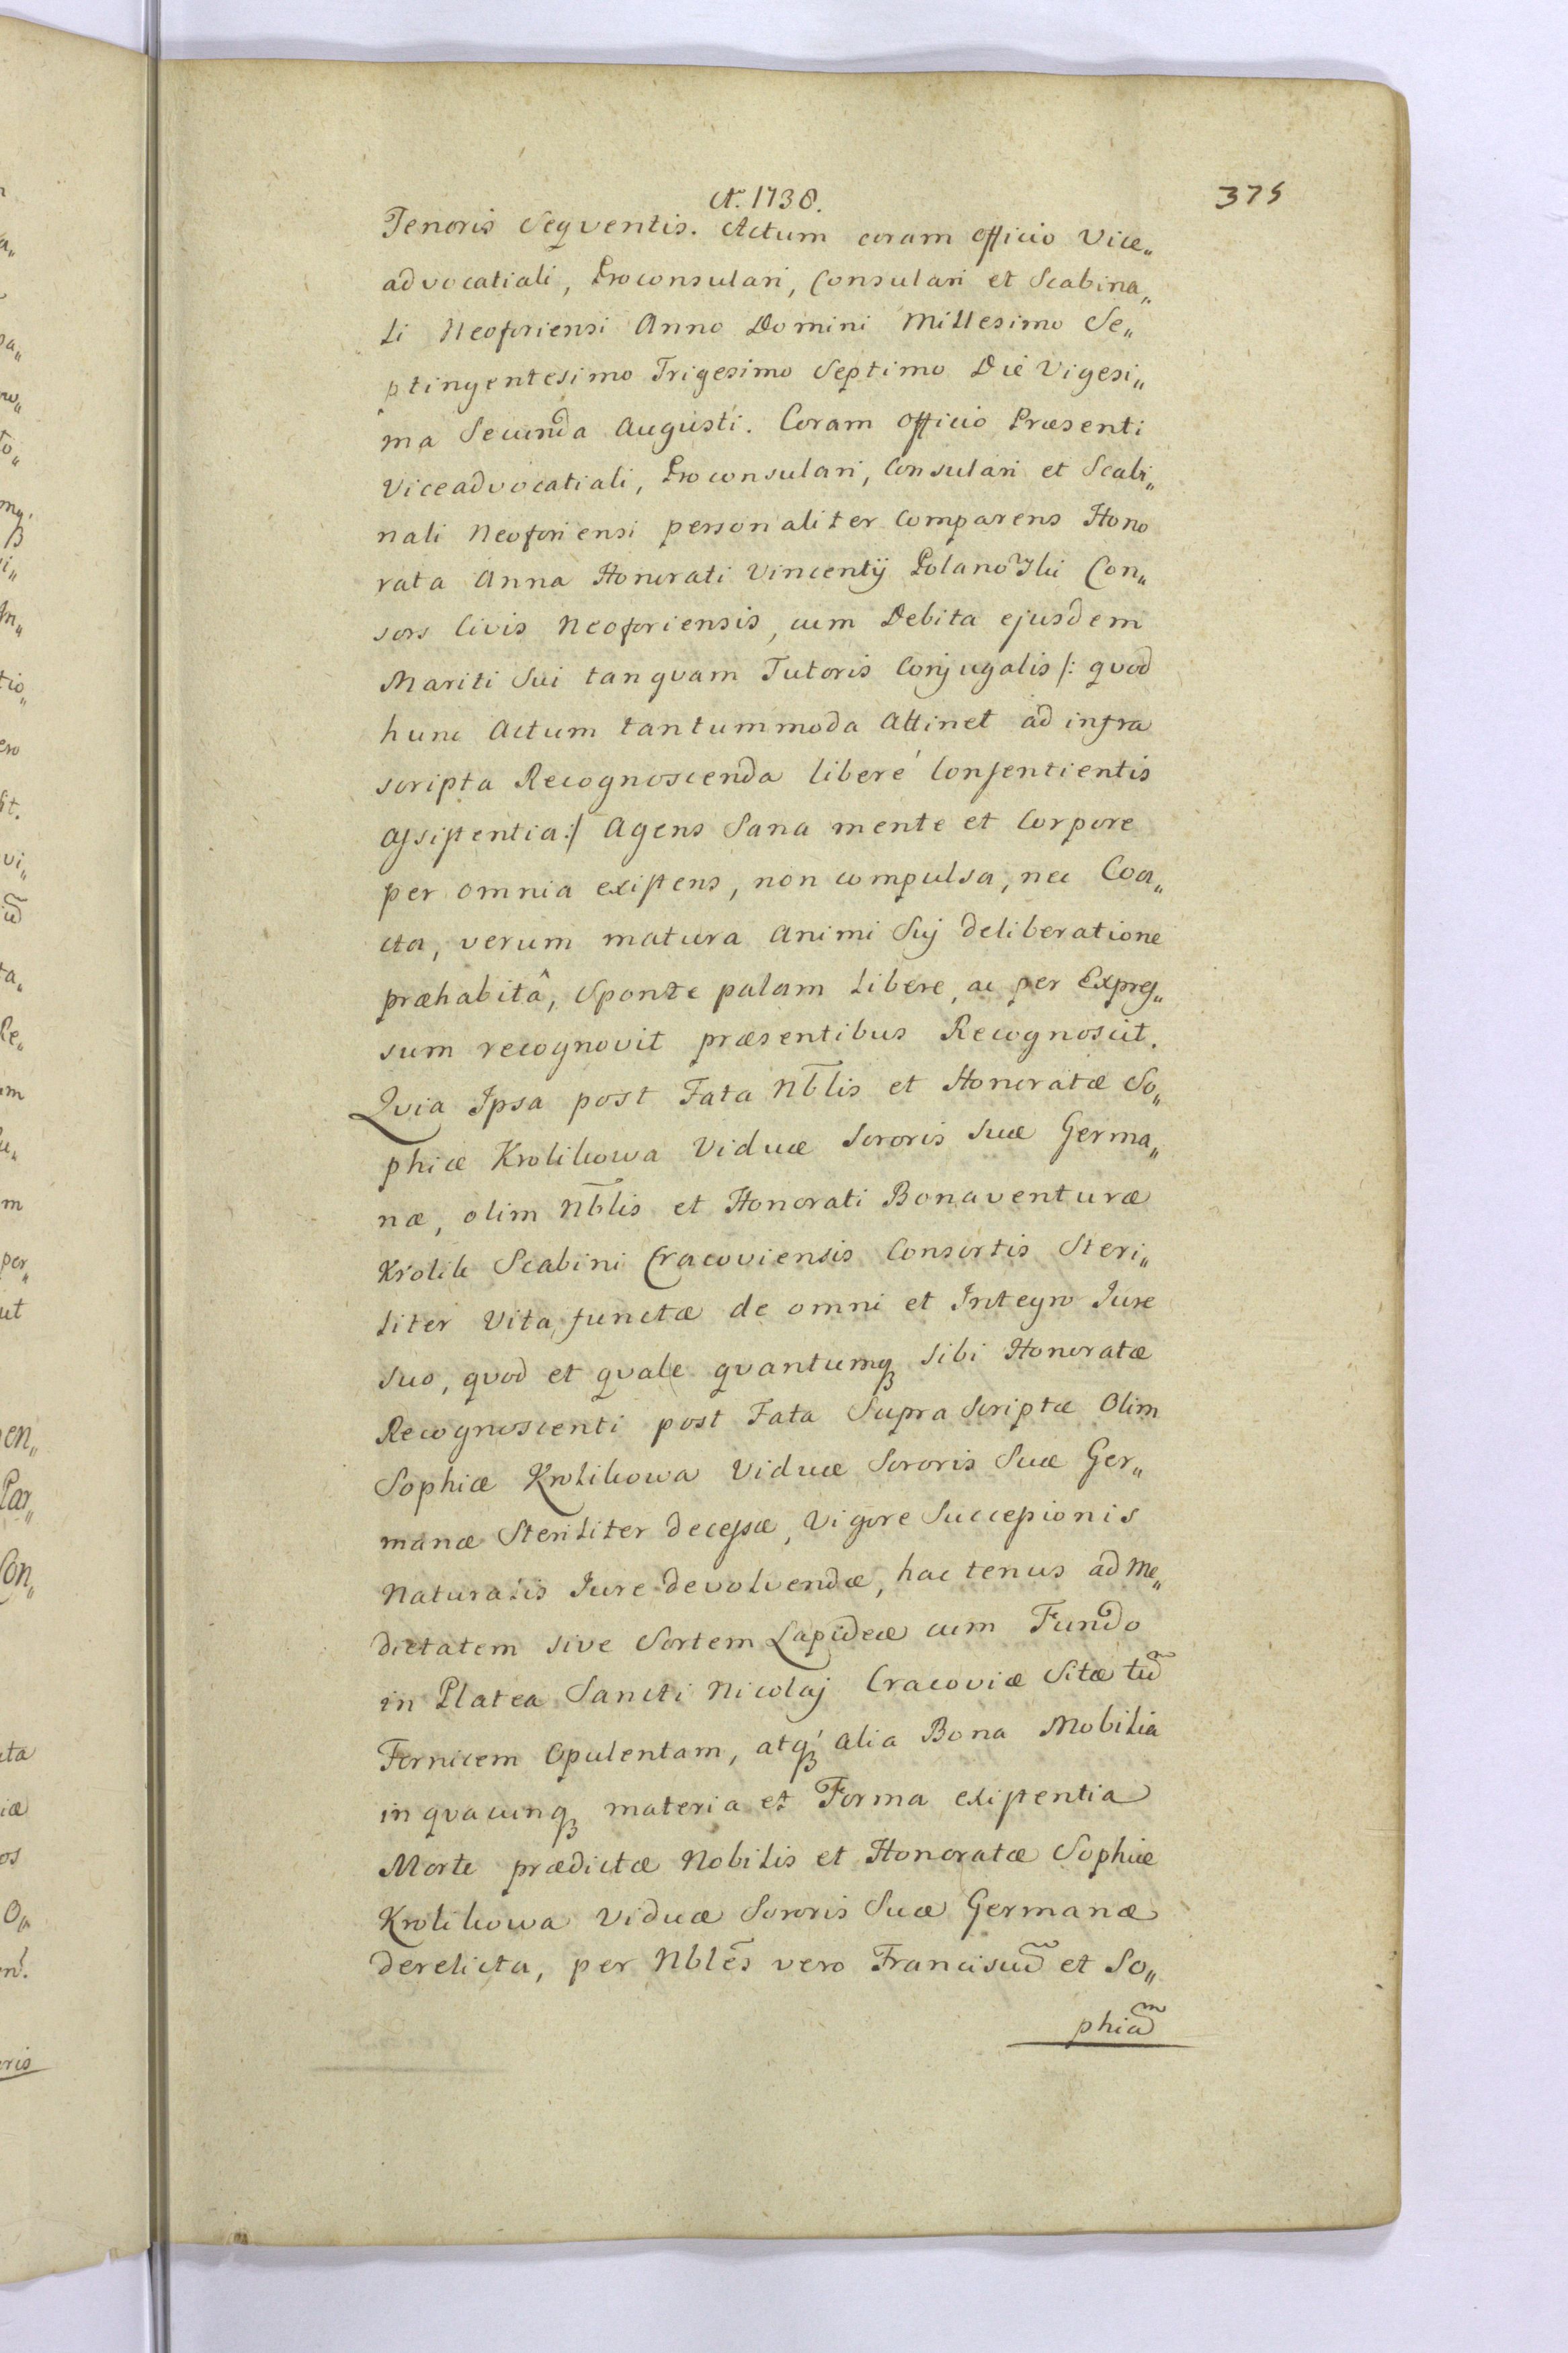 A. 1738.
375
Tenoris Sequentis. Actum coram officio Vice„
advocatiali, Proconsulari, Consulari et Scabina„
li Neoforiensi Anno Domini Millesimo Se„
ptingentesimo Trigesimo Septimo Die Vigesi„
ma Secunda Augusti. Coram Officio Præsenti
Viceadvocatiali, Proconsulari, Consulari et Scabi„
nali Neoforiensi personaliter Comparens Hono
rata Anna Honorati Vincentij Con„
sors Civis Neoforiensis, cum Debita ejusdem
Mariti Sui tanquam Tutoris Conjugalis /: quod
hunc Actum tantummoda Attinet ad infra
scripta Recognoscenda liberé Consentientis
Assistentia :/ Agens Sana mente et Corpore
per omnia existens, non compulsa, nec Coa„
cta, verum matura Animi Suj deliberatione
præhabitâ, Sponte palam Libere, ac per Expres„
sum recognovit præsentibus Recognoscit.
Quia Ipsa post Fata Nb̃lis et Honoratæ So„
phiæ Krolikowa Viduæ Sororis Suæ Germa„
næ, olim Nb̃lis et Honorati Bonaventuræ
Królik Scabini Cracoviensis Consortis Steri„
liter Vita functæ de omni et Integro Jure
suo, quod et quale quantumqȝ sibi Honoratæ
Recognoscenti post Fata Supra Scriptæ Olim
Sophiæ Krolikowa Viduæ Sororis Suæ Ger„
manæ Steriliter decessæ, Vigore Successionis
Naturalis Jure devolvendæ, hactenus ad Me„
dietatem sive Sortem Lapideæ cum Fundo
in Platea Sancti Nicolaj Cracoviæ Sitæ tũ
Fornicem Opulentam, atqȝ alia Bona Mobilia
in quacunqȝ materia et Forma existentia
Morte prædictæ Nobilis et Honoratæ Sophiæ
Krolikowa Viduæ Sororis Suæ Germanæ
derelicta, per Nblẽs vero Franciscũ et So„
phiam̃